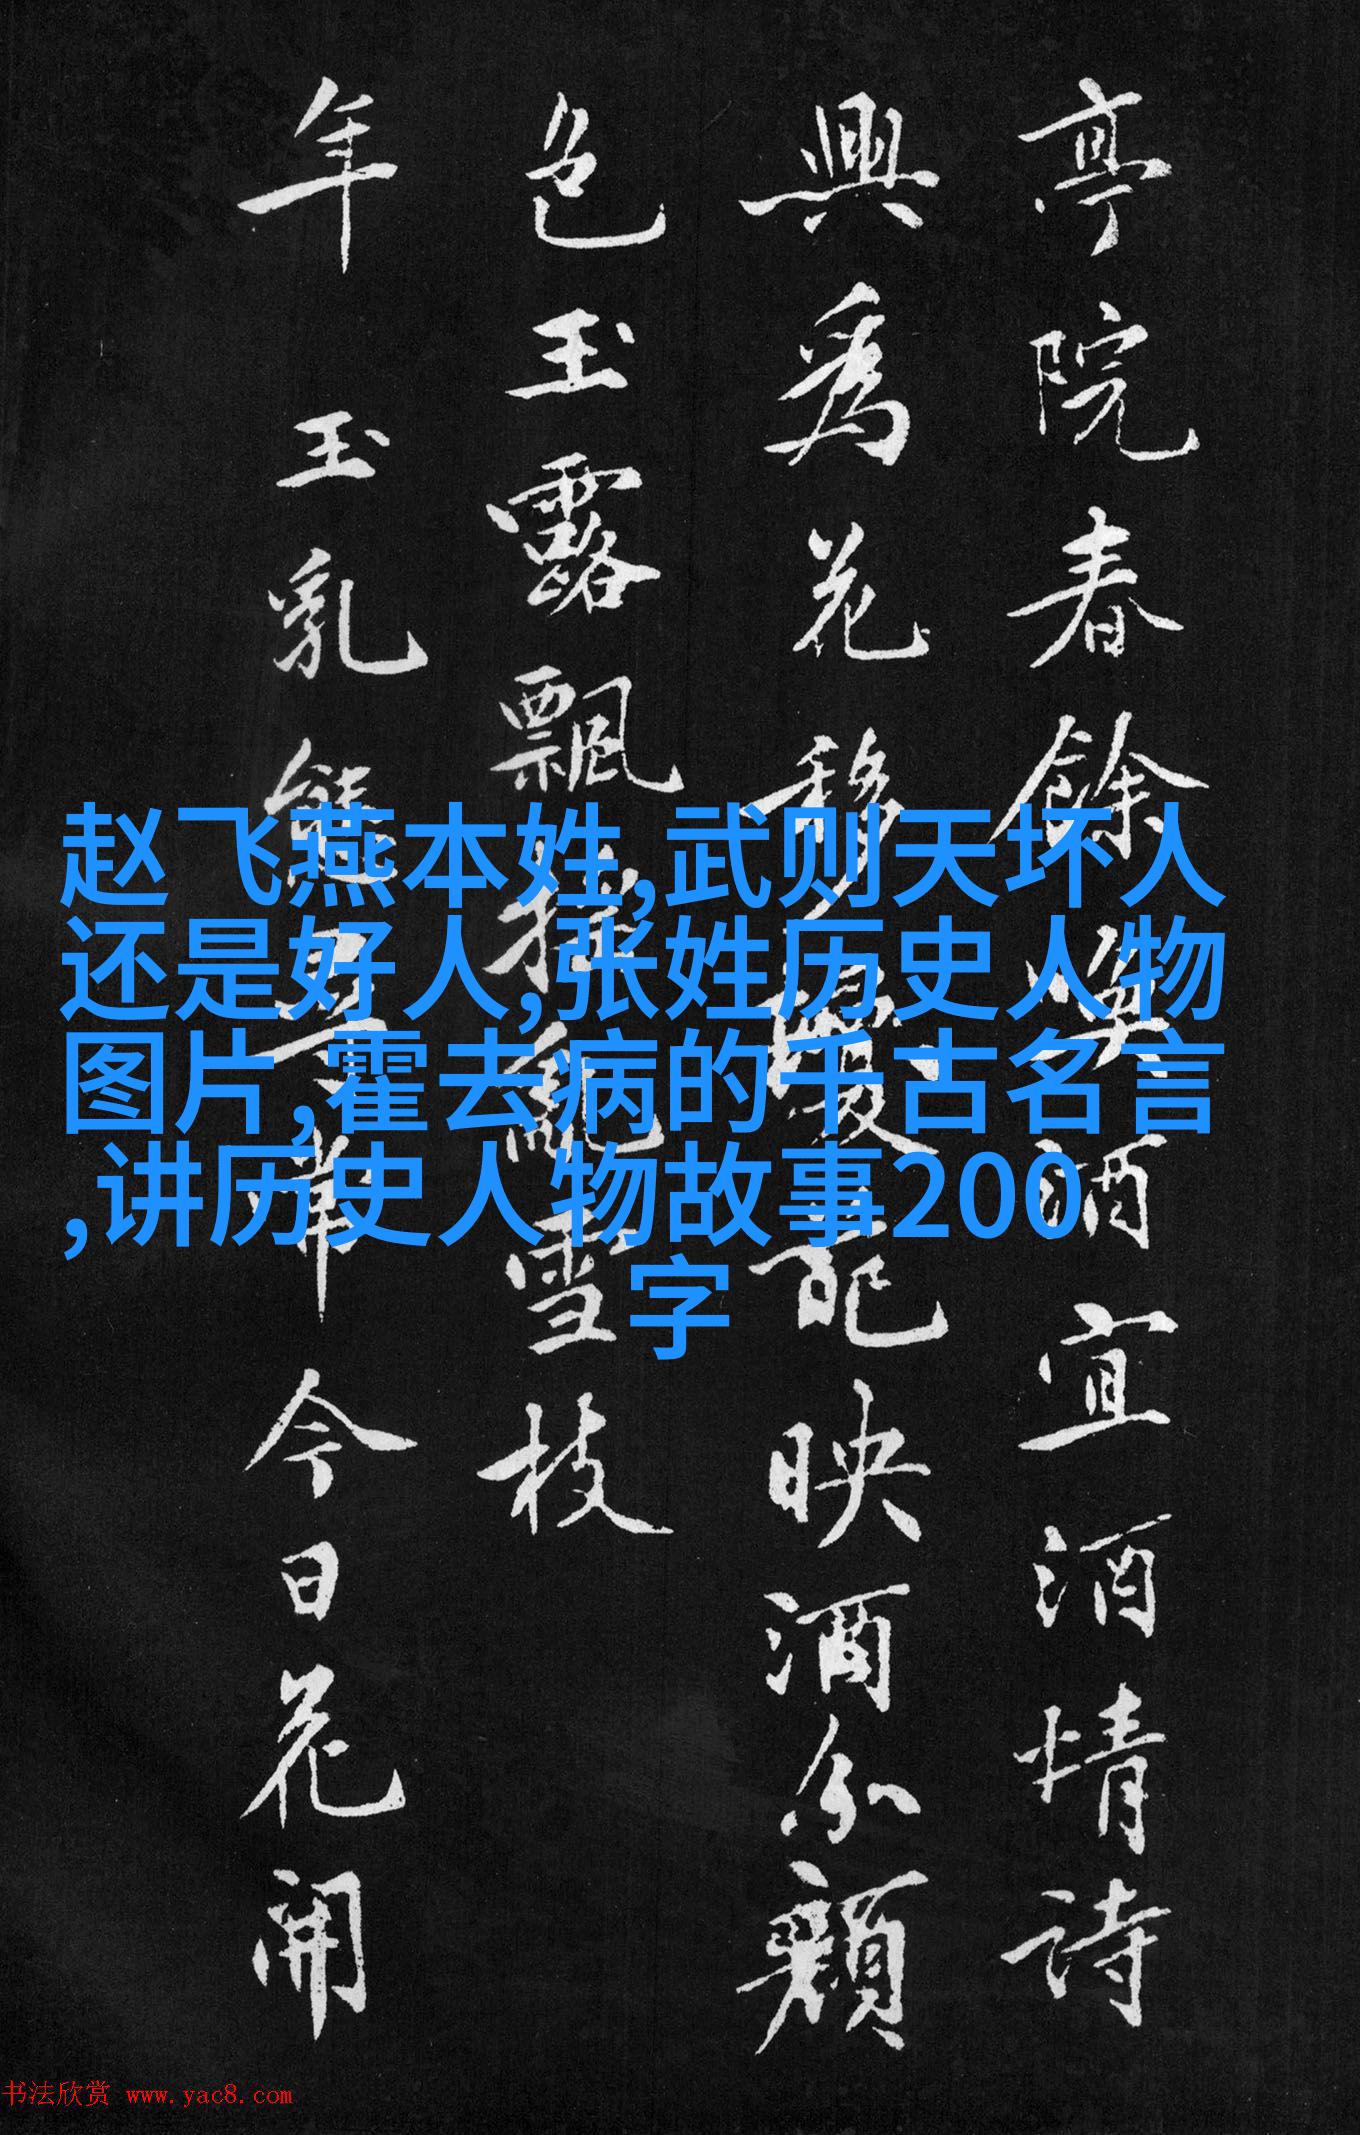 亭院春餘喚酒宜酒情詩
興為花移映酒分顏
色玉露飄亂雪枝
年 玉乳 今日花開
赵飞燕本姓,武则天坏人
还是好人,张姓历史人物
图片,霍去病的千古名言
,讲历史人物故事200
字
书法欣赏 www.yac8.com